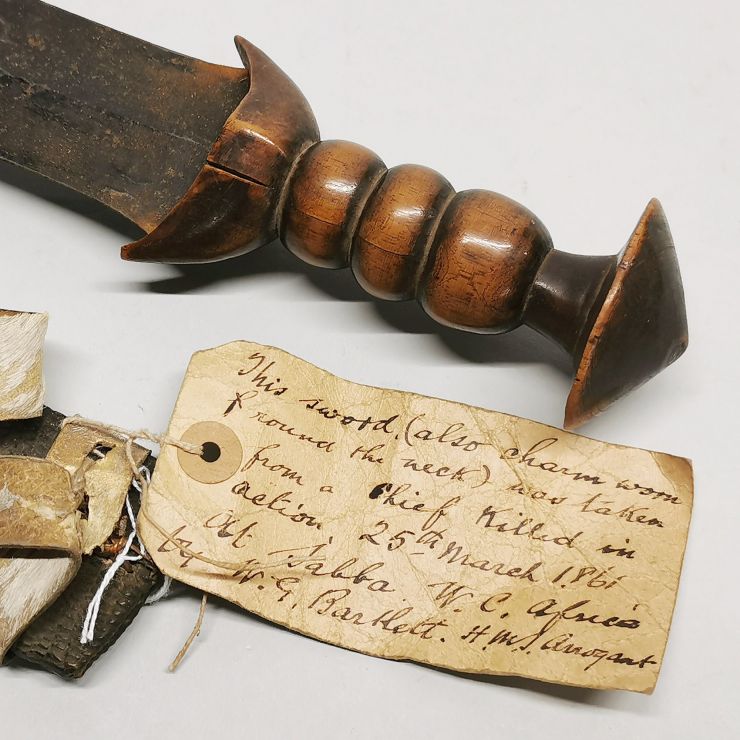 This sword, (also charm worn
round the neck) was taken
from a Chief Killed in
action, 25th March 1.861
At Sabba. W. C. Africa
by W. G. Bartlett. H.M.S. Arrogant